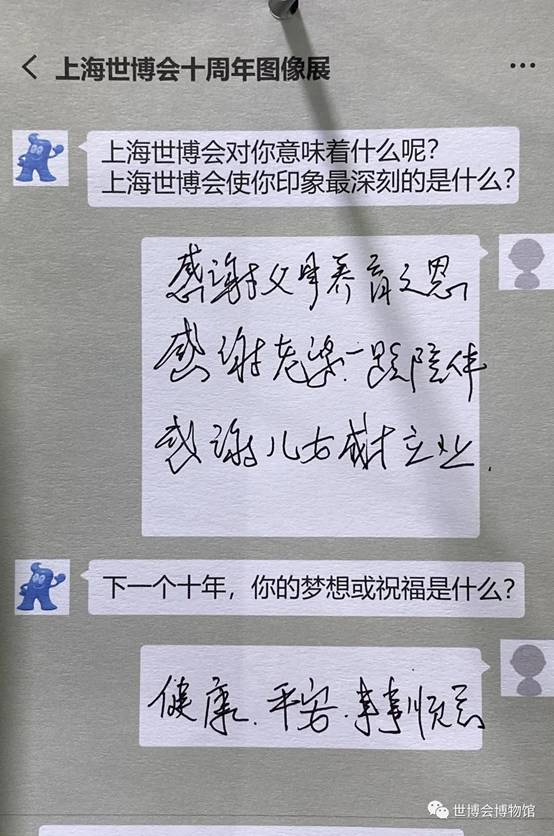 上海世博会十周年图像展
上海世博会对你意味着什么呢?
上海世博会使你印象最深刻的是什么?
感谢父母养育之恩
感谢老婆一路陪伴
感谢儿女成才立业.
下一个十年,你的梦想或祝福是什么?
健康.平安.事事顺意
世博会博物馆